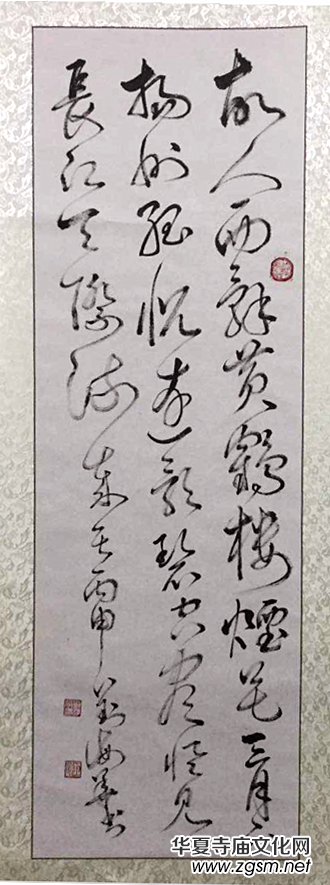 故人西辭黄鶴樓煙花三月下
揚州孤帆遠影碧空盡惟見
長江天際流 丙申
华夏寺庙文化网
www.zgsm.net